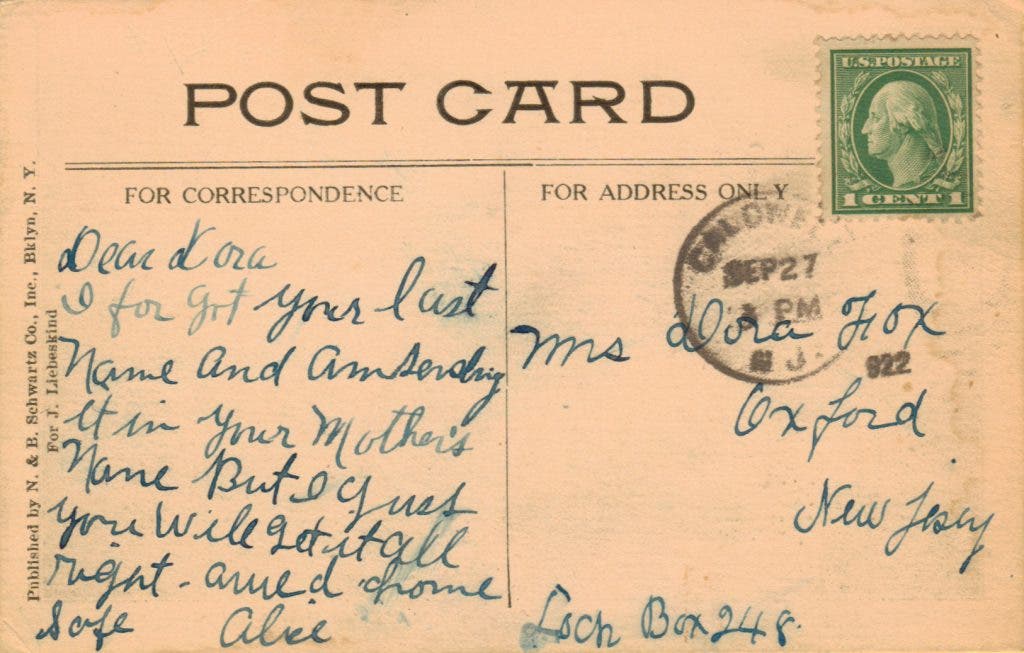 POST CARD
U.S. POSTAGE
1 CENT 1
FOR CORRESPONDENCE
FOR ADDRESS ONLY
Dear Dora
I for got your last
Name and am sending
it in your Mother's
Name But I guss
you will get it all
right - arrived home
safe Alice
SEP 27
PM
N J.
922
Mrs Dora Fox
Oxford
New Jesey
Lock Box 248.
Published by N. & B. Schwartz Co., Inc., Bklyn, N. Y.
For J. Liebeskind